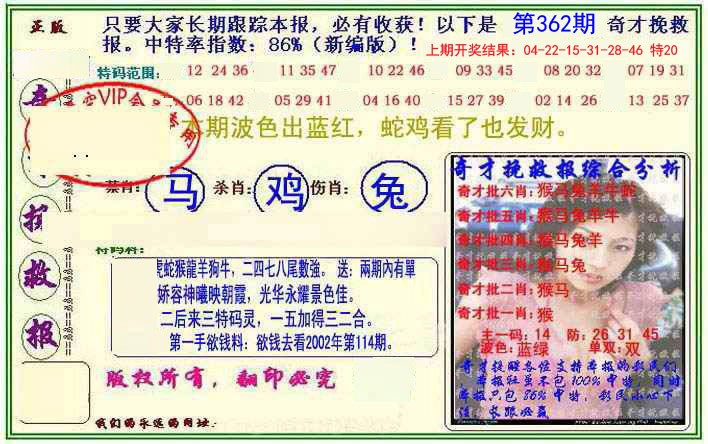 正版
只要大家长期跟踪本报，必有收获！以下是 第362期 奇才挽救
报。中特率指数：86%（新编版）！
上期开奖结果：04-22-15-31-28-46 特20
特码范围：
12 24 36 11 35 47 10 22 46 09 33 45 08 20 32 07 19 31
06 18 42 05 29 41 04 16 40 15 27 39 02 14 26 13 25 37
VIP会
本期波色出蓝红，蛇鸡看了也发财。
禁肖：马 杀肖：鸡 伤肖：兔
特码料：
虎蛇猴龍羊狗牛，二四七八尾數強。送：兩期內有單
娇容神曦映朝霞，光华永耀景色佳。
二后来三特码灵，一五加得三二合。
第一手欲钱料：欲钱去看2002年第114期。
版权所有，翻印必究
我们的永远的网址：
救
报
奇才挽救报综合分析
奇才批六肖：猴马兔羊牛蛇
奇才批五肖：猴马兔羊牛
奇才批四肖：猴马兔羊
奇才批三肖：猴马兔
奇才批二肖：猴马
奇才批一肖：猴
主一码：14 防：26 31 45
波色：蓝绿 单双：双
奇才挽救各位支持本报的彩民们
本报虽不包100%中特，同时
本报只包86%中特，彩民小心下
注，长跟必赢